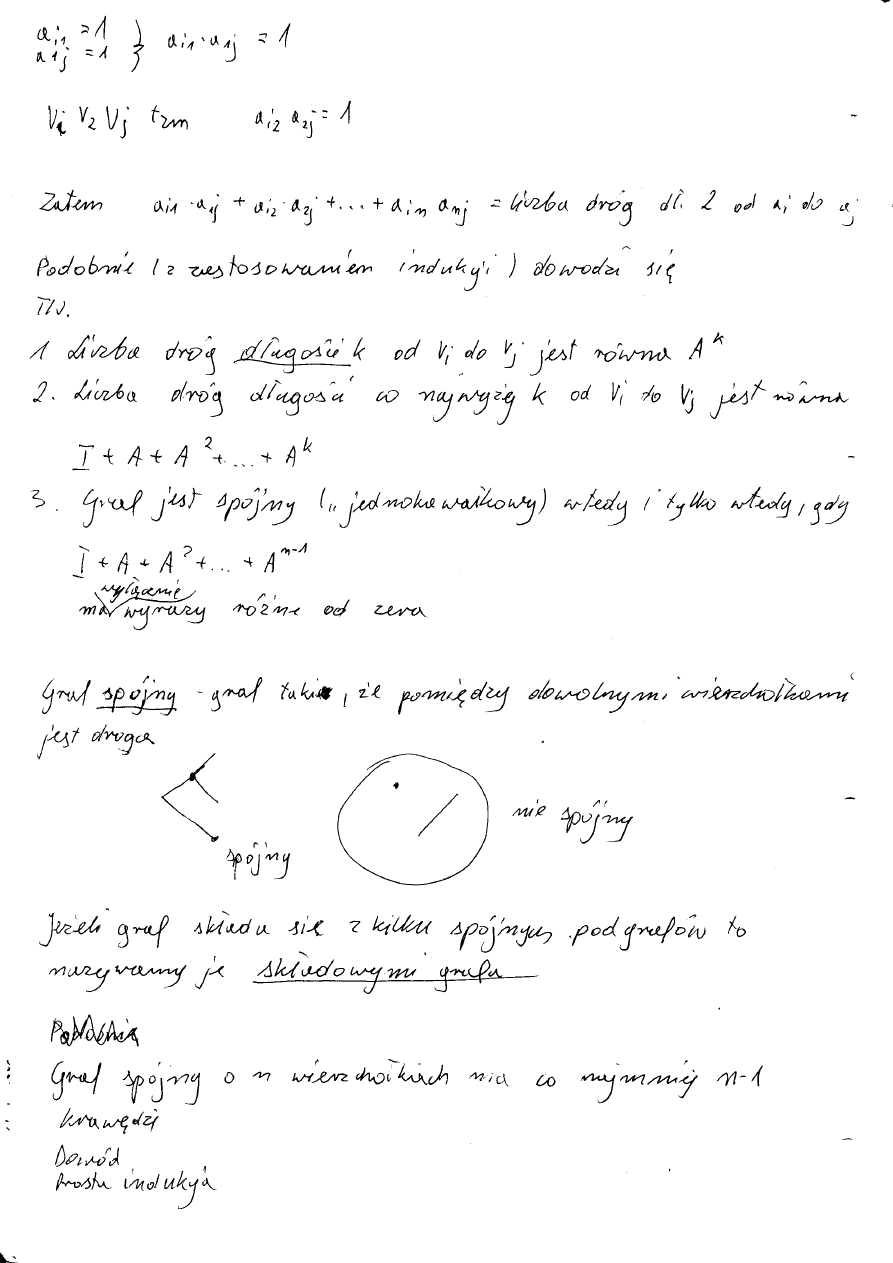 a_{i1} = 1 } a_{i1} · a_{1j} = 1
a_{1j} = 1
V_i V_2 V_j tzn a_{i2} a_{2j} = 1
Zatem a_{i1} · a_{1j} + a_{i2} · a_{2j} + ... + a_{in} a_{nj} = liczba dróg dł. 2 od a_i do a_j
Podobnie (z zastosowaniem indukcji) dowodzi się
TW.
1 Liczba dróg długości k od V_i do V_j jest równa A^k
2. Liczba dróg długości co najwyżej k od V_i do V_j jest równa
I + A + A^2 + ... + A^k
3. Graf jest spójny („jednokawałkowy) wtedy i tylko wtedy, gdy
I + A + A^2 + ... + A^{n-1}
wyłącznie
ma wyrazy różne od zera
Graf spójny - graf taki, że pomiędzy dowolnymi wierzchołkami
jest droga
spójny
nie spójny
Jeżeli graf składa się z kilku spójnych podgrafów to
nazywamy je składowymi grafu
Graf spójny o n wierzchołkach ma co najmniej n-1
krawędzi
Dowód
Prosta indukcja